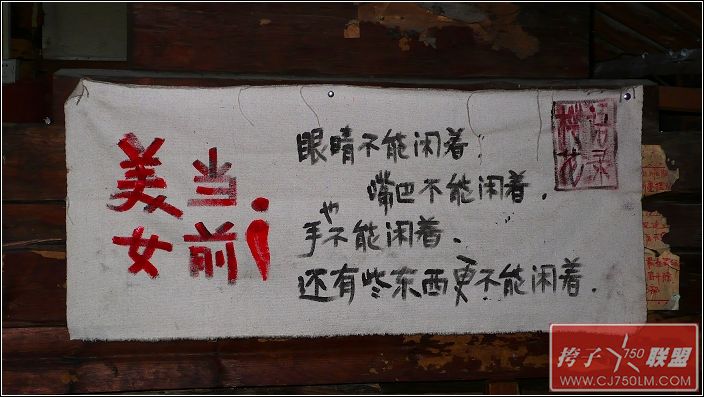 美女当前！
眼睛不能闲着.
嘴巴不能闲着.
手也不能闲着.
还有些东西更不能闲着.
语录
挎子750联盟
WWW.CJ750LM.COM